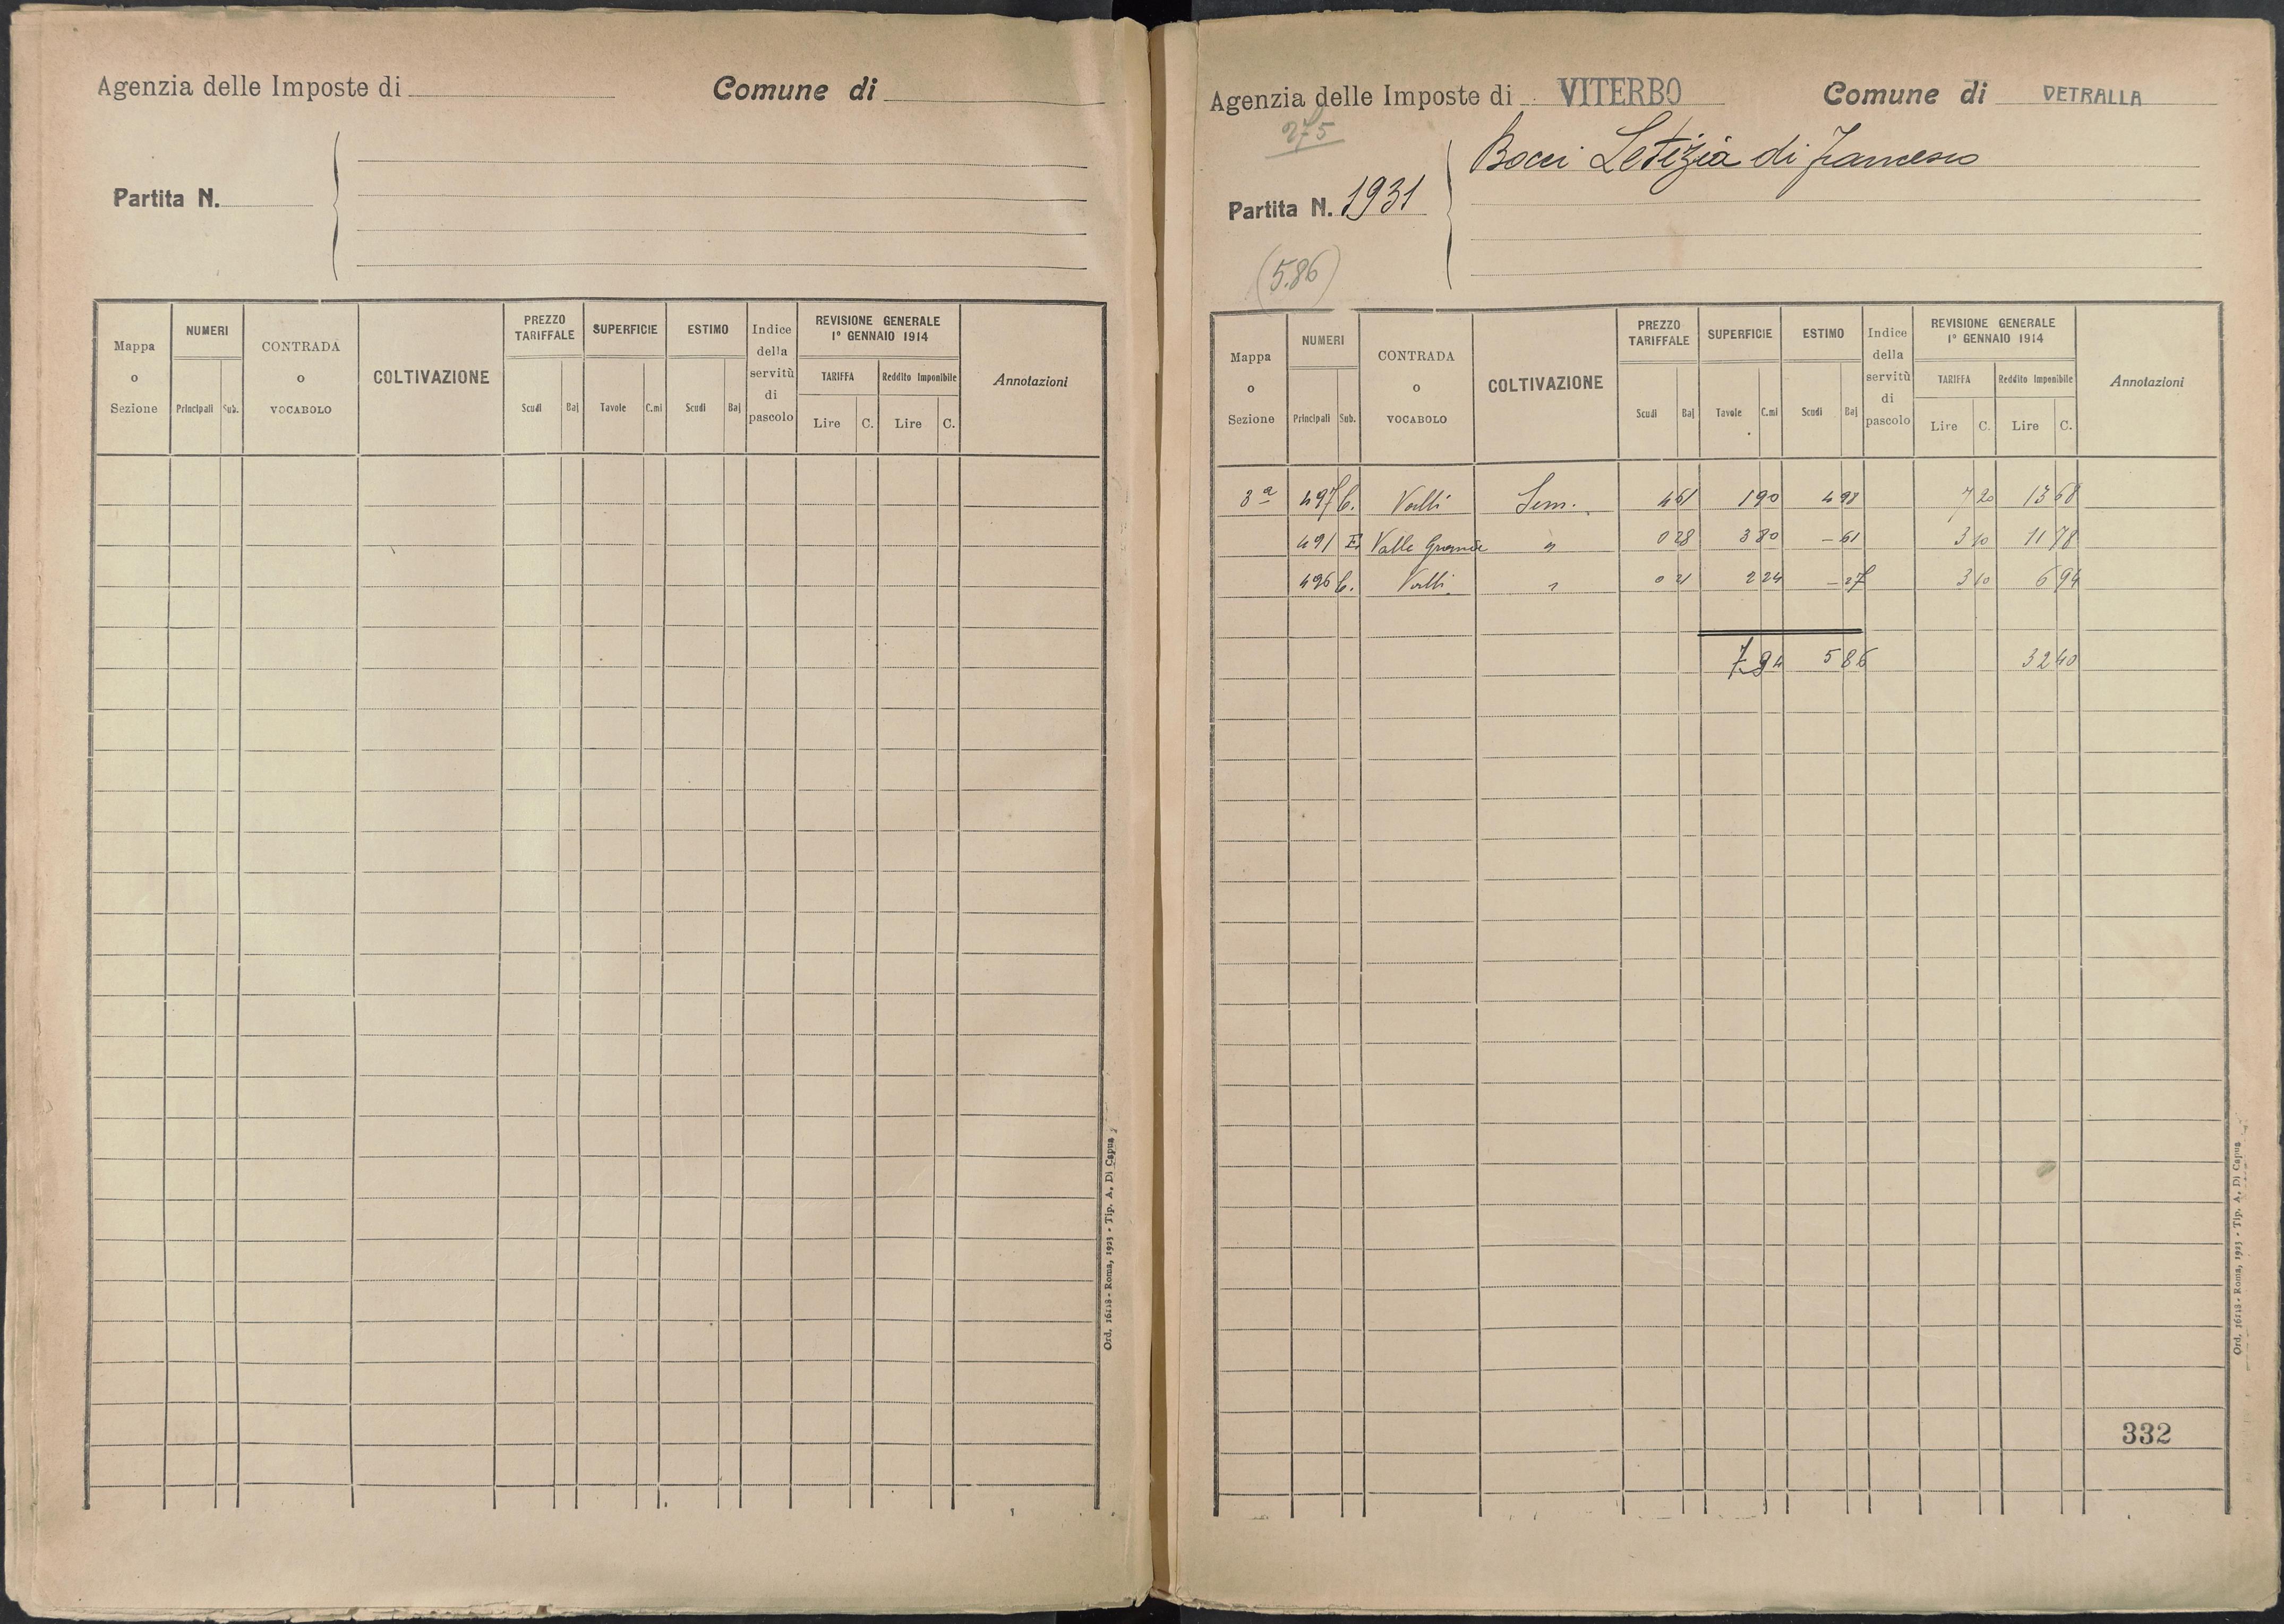 Agenzia delle Imposte di
Comune di
Partita N.
Mappa o Sezione
NUMERI
Principali Sub.
CONTRADA o VOCABOLO
COLTIVAZIONE
PREZZO TARIFFALE
Scudi Baj
SUPERFICIE
Tavole C.mi
ESTIMO
Scudi Baj
Indice della servitù di pascolo
REVISIONE GENERALE
1° GENNAIO 1914
TARIFFA
Lire C.
Reddito Imponibile
Lire C.
Annotazioni
Ord. 16118 - Roma, 1923 - Tip. A. Di Capua
Agenzia delle Imposte di VITERBO
Comune di VETRALLA
275
Bocci Letizia di Francesco
Partita N. 1931
(5.86)
Mappa o Sezione
NUMERI
Principali Sub.
CONTRADA o VOCABOLO
COLTIVAZIONE
PREZZO TARIFFALE
Scudi Baj
SUPERFICIE
Tavole C.mi
ESTIMO
Scudi Baj
Indice della servitù di pascolo
REVISIONE GENERALE
1° GENNAIO 1914
TARIFFA
Lire C.
Reddito Imponibile
Lire C.
Annotazioni
3a 497 b. Valli Sem. 4 61 1 90 4 98 7 20 13 68
491 Valle Grande " 0 28 3 80 - 61 3 10 11 78
496 b. Valli " 0 21 2 24 - 27 3 10 6 94
7 94 5 86 32 40
332
Ord. 16118 - Roma, 1923 - Tip. A. Di Capua